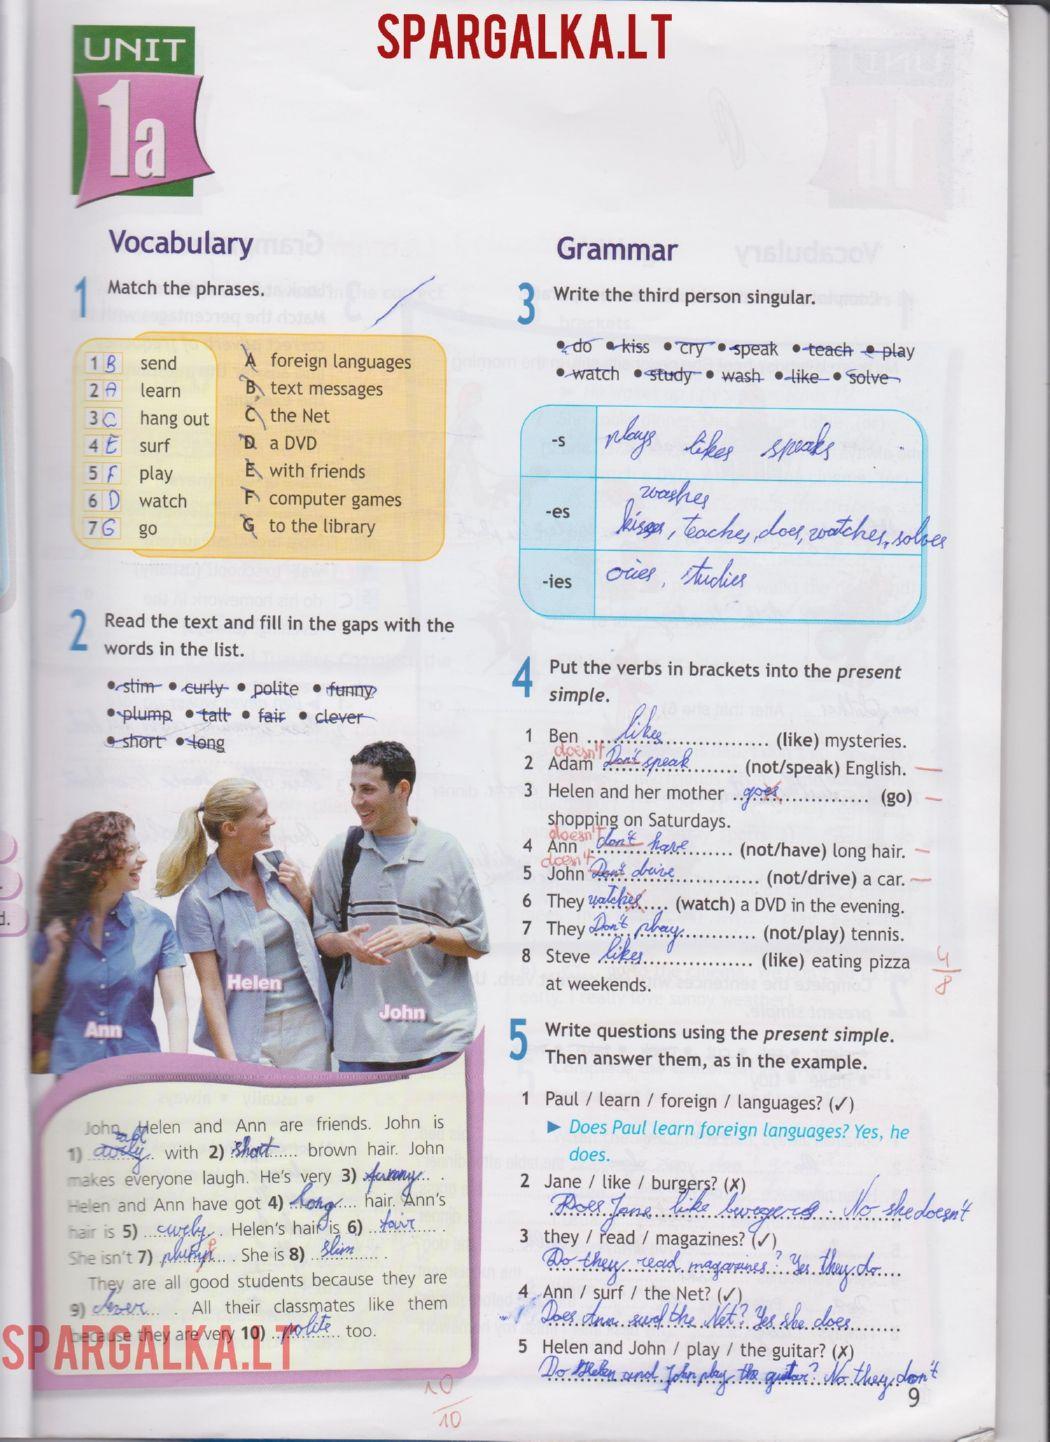 SPARGALKA.LT
UNIT
1a
Vocabulary
1 Match the phrases.
1 B send
2 A learn
3 C hang out
4 E surf
5 F play
6 D watch
7 G go
A foreign languages
B text messages
C the Net
D a DVD
E with friends
F computer games
G to the library
2 Read the text and fill in the gaps with the
words in the list.
• slim • curly • polite • funny
• plump • tall • fair • clever
• short • long
Ann
Helen
John
John, Helen and Ann are friends. John is
1) with 2) short brown hair. John
makes everyone laugh. He's very 3) funny .
Helen and Ann have got 4) long hair. Ann's
hair is 5) curly . Helen's hair is 6) fair .
She isn't 7) plump . She is 8) slim .
They are all good students because they are
9) clever . All their classmates like them
because they are very 10) polite too.
SPARGALKA.LT
10/10
Grammar
3 Write the third person singular.
• do • kiss • cry • speak • teach • play
• watch • study • wash • like • solve
-s plays likes speaks
washes
-es kisses, teaches, does, watches, solves
-ies cries, studies
4 Put the verbs in brackets into the present
simple.
1 Ben likes (like) mysteries.
doesn't
2 Adam Don't speak (not/speak) English.
3 Helen and her mother goes (go)
shopping on Saturdays.
doesn't
4 Ann don't have (not/have) long hair.
doesn't
5 John Don't drive (not/drive) a car.
6 They watches (watch) a DVD in the evening.
7 They Don't play (not/play) tennis.
8 Steve likes (like) eating pizza
at weekends.
4/8
5 Write questions using the present simple.
Then answer them, as in the example.
1 Paul / learn / foreign / languages? (✓)
► Does Paul learn foreign languages? Yes, he
does.
2 Jane / like / burgers? (✗)
Does Jane like . No she doesn't
3 they / read / magazines? (✓)
Do they read magazines? Yes they do
4 Ann / surf / the Net? (✓)
Does Ann surf the Net? Yes she does
5 Helen and John / play / the guitar? (✗)
Do Helen and John play the guitar? No they don't
9